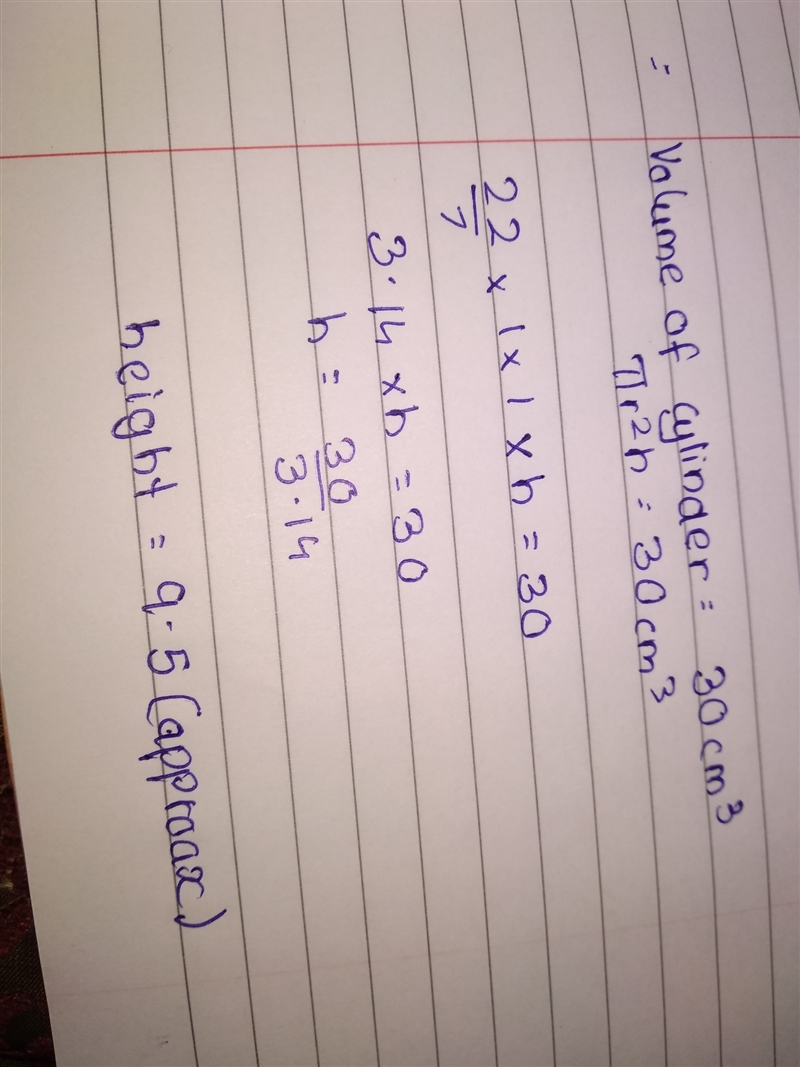 = Volume of cylinder = 30 cm³
πr²h = 30 cm³
22/7 x 1 x 1 x h = 30
3.14 x h = 30
h = 30/3.14
height = 9.5 (approax)